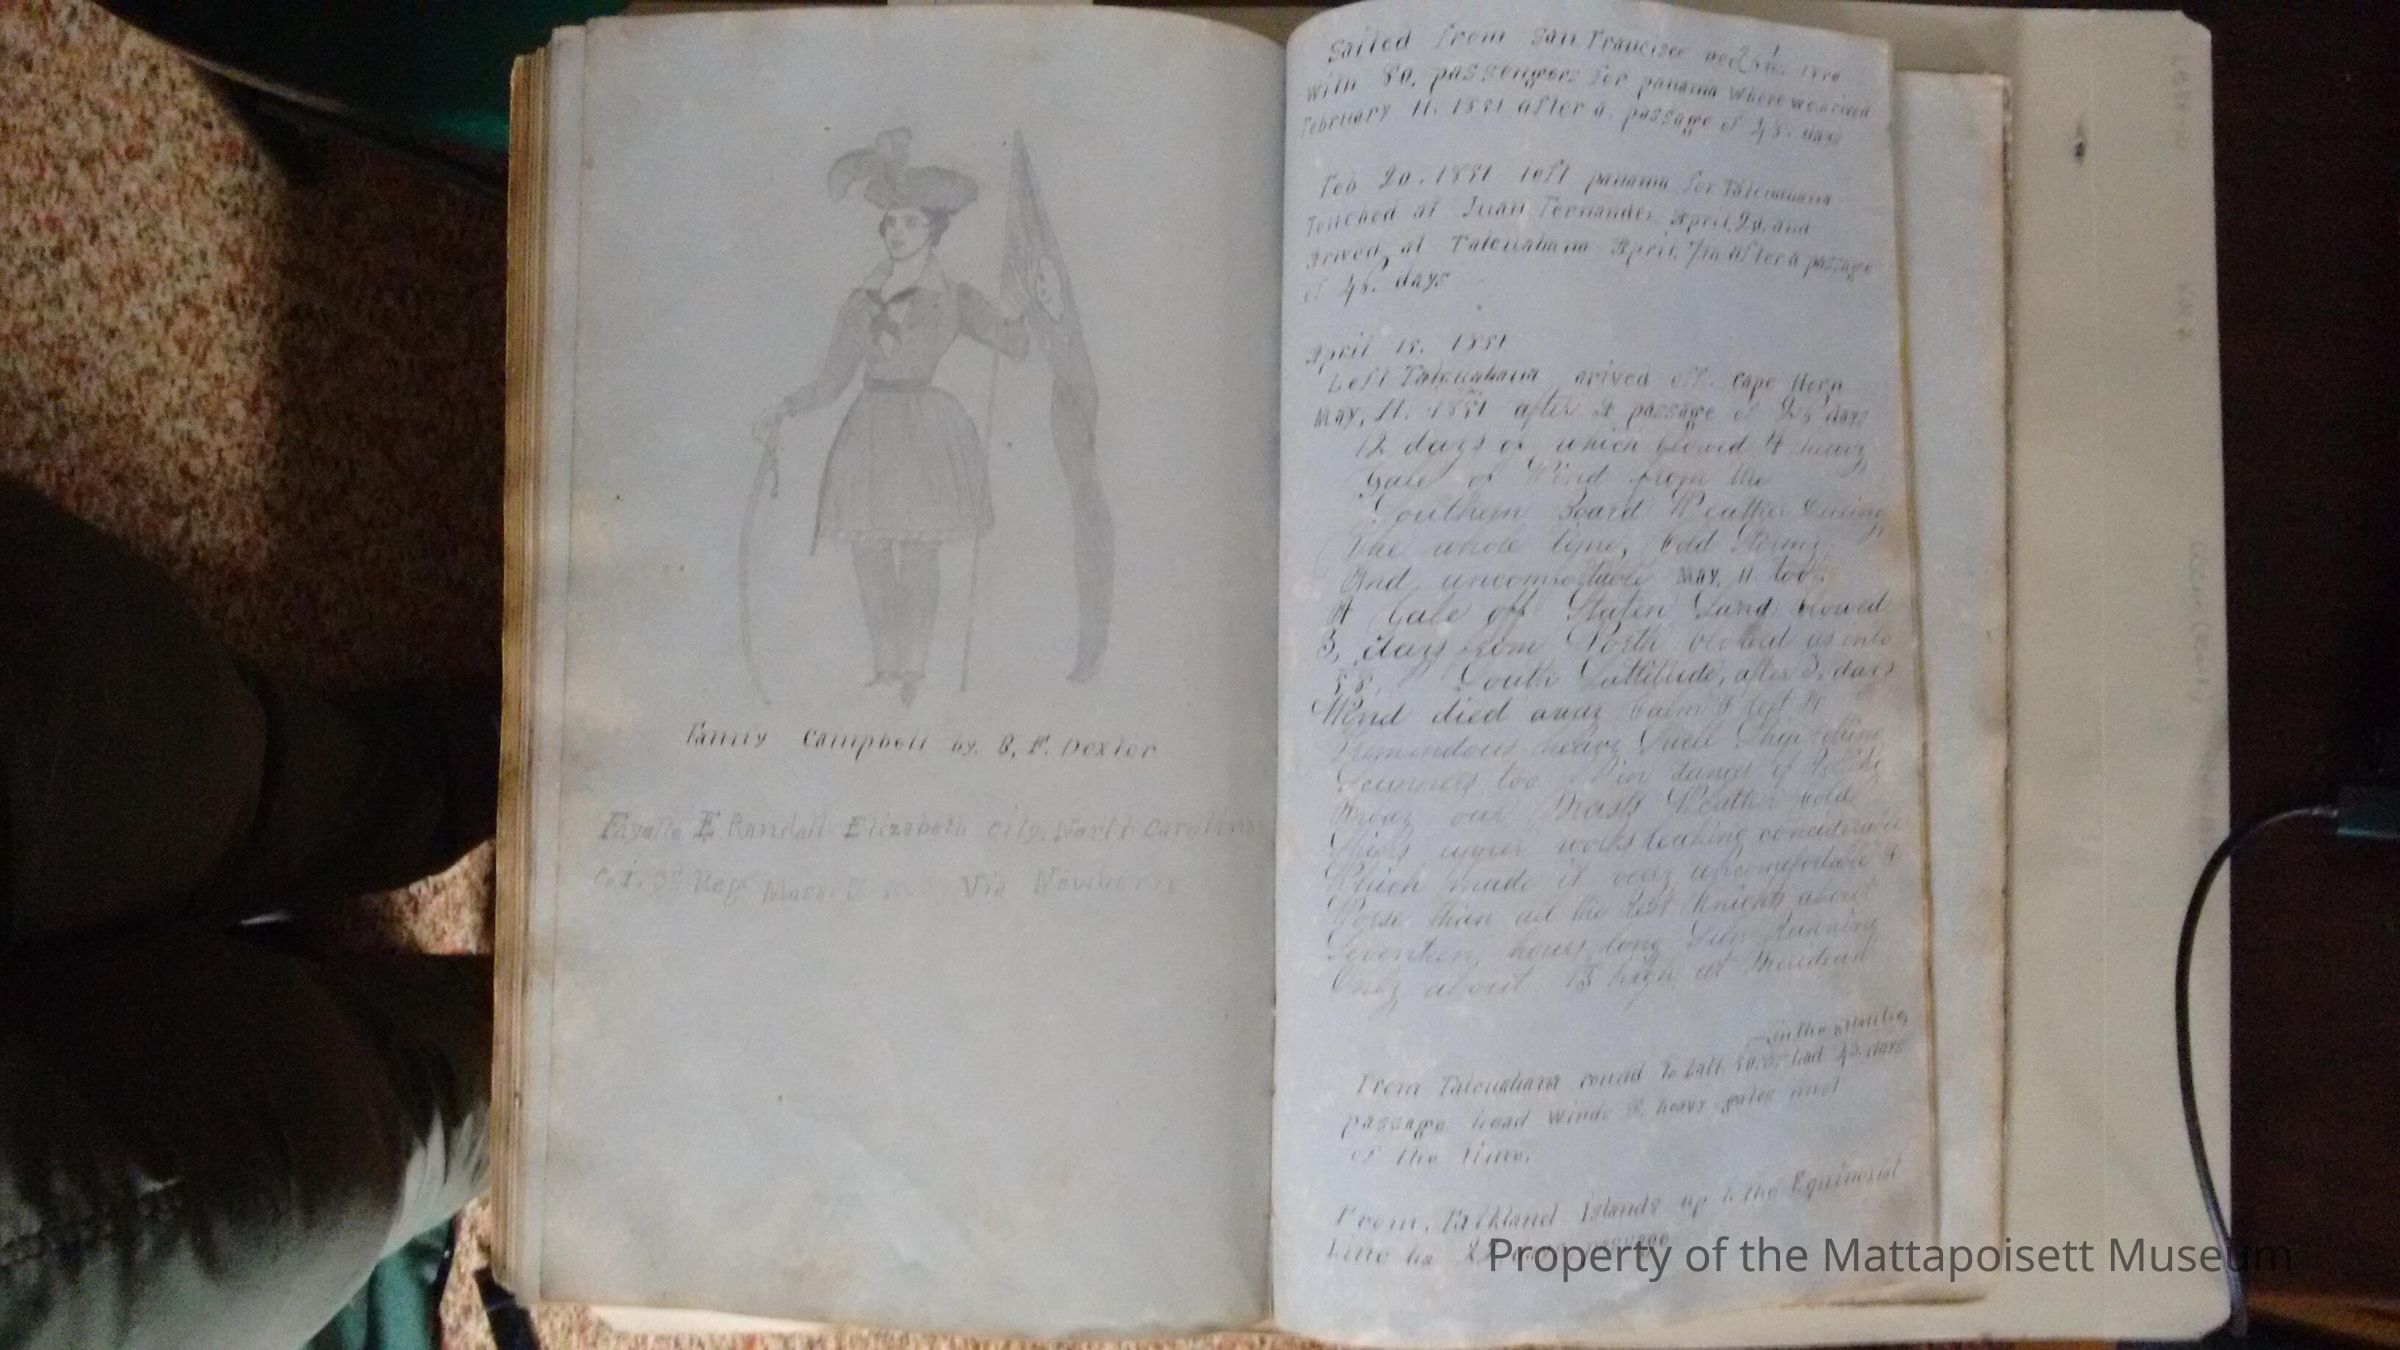 Fanny Campbell by. B. F. Dexter
Fayette E Randall Elizabeth city. North Carolina
Reg Via Newberne
Sailed from San Francisco
with 80. passengers for panama where we arived
February 11. 1851 after a. passage of 48. days
Feb 20. 1851 left panama for Talcuahana
Touched at Juan Fernandes April, 2d, and
arived at Talcuahana April, 7th after a passage
of 46. days
April 15. 1851
Left Talcuahana arived off. Cape Horn
May, 11. 1851 after A passage of 26 days
12 days of which blowed A heavy
Gale of Wind from the
Southern Board Weather being
The whole time, Cold Stormy
And uncomfortable May, 11 took
A Gale off Staten Land blowed
3, days from North blowed us into
58. South Lattitude, after 3, days
Wind died away Calm & left A
Tremendous heavy Swell Ship rolling
Scunners too in danger of Rolling
Away our Masts Weather Cold
Ships upper works leaking conciderable
Which made it very uncomfortable &
Worse than all the Rest Knights about
Seventeen hours long Sun Running
Only about 13 high at Meridian
in the Atlantic,
From Talcuahana round to Latt, had 43. days
passage head winds & heavy gales most
of the time.
From, Falkland Islands up to the Equinoxial
Line
Property of the Mattapoisett Museum